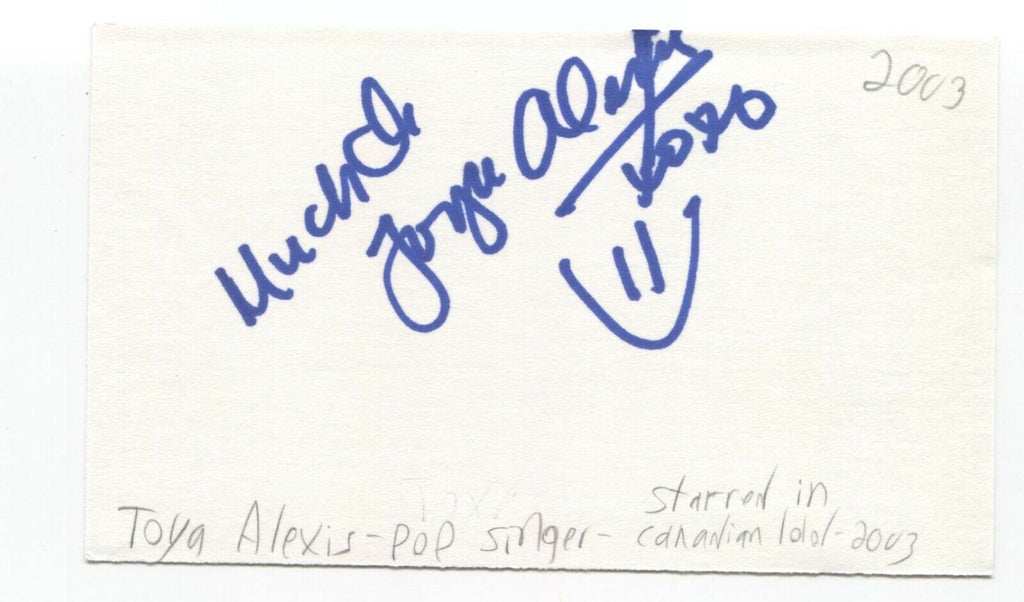 2003
Much
Toya Alexis
XOXO
Toya Alexis - pop singer - starred in
canadian Idol - 2003